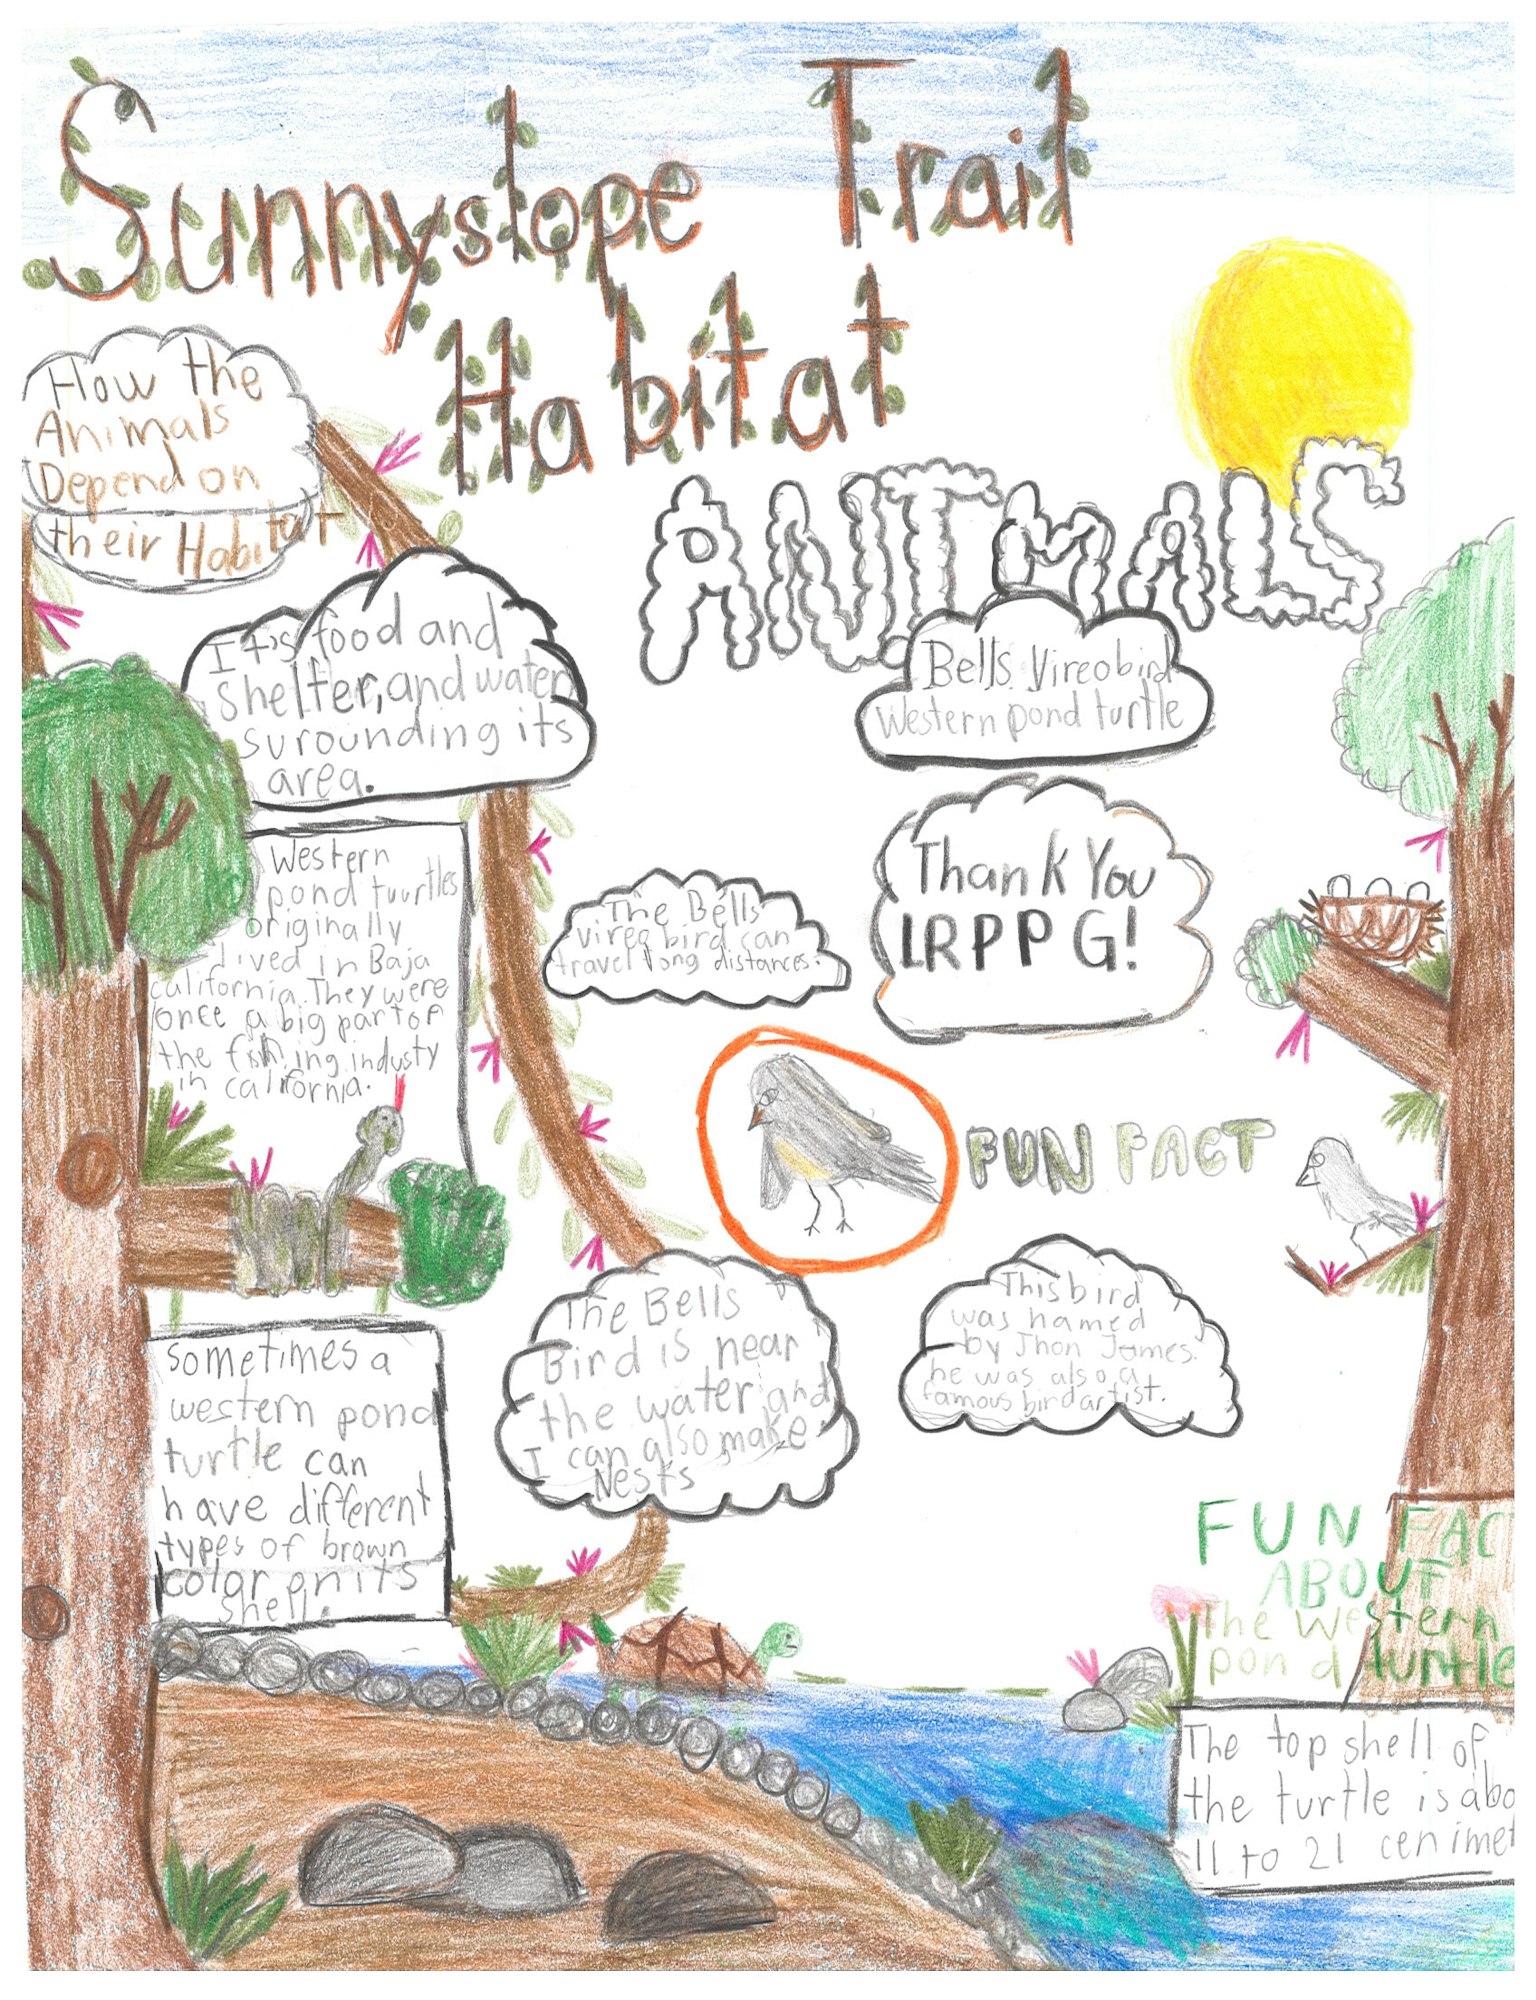 Sunnyslope Trail
Habitat
How the
Animals
Depend on
their Habitat
ANIMALS
It's food and
shelter, and water
surounding its
area.
Bells Vireo bird
Western pond turtle
Thank You
LRPPG!
Western
pond tuurtles
originally
lived in Baja
california. They were
once a big part of
the fishing industy
in california.
The Bells
vireo bird can
travel long distances.
FUN FACT
The Bells
Bird is near
the water and
I can also make
Nests
This bird
was named
by Jhon James.
he was also a
famous bird artist.
sometimes a
western pond
turtle can
have different
types of brown
color on its
shell.
FUN FAC
ABOUT
The western
pond turtle
The top shell of
the turtle is abo
11 to 21 cenimet